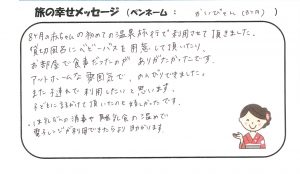 旅の幸せメッセージ（ペンネーム： さいぴぃ ）
8ヶ月の赤ちゃんの初めての温泉旅行で利用させて頂きました。
貸切風呂にベビーバスを用意して頂いたり、
お部屋で食事だったのが ありがたかったです。
アットホームな雰囲気で、のんびりできました。
また子連れで利用したいと思います。
子どもに声をかけて頂いたのも嬉しかったです。
ほ乳びんの消毒や離乳食の温めで
電子レンジが利用できたらより助かります。